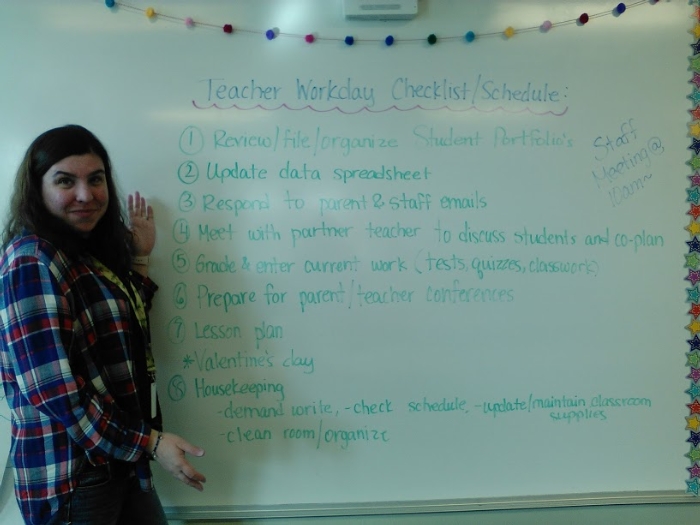 Teacher Workday Checklist/Schedule:
① Review/file/organize Student Portfolio's
② Update data spreadsheet
③ Respond to parent & staff emails
④ Meet with partner teacher to discuss students and co-plan
⑤ Grade & enter current work (tests, quizzes, classwork)
⑥ Prepare for parent/teacher conferences
⑦ Lesson plan
*Valentine's day
⑧ Housekeeping
-demand write, -check schedule, -update/maintain classroom
supplies
-clean room/organize
Staff
Meeting@
10am~